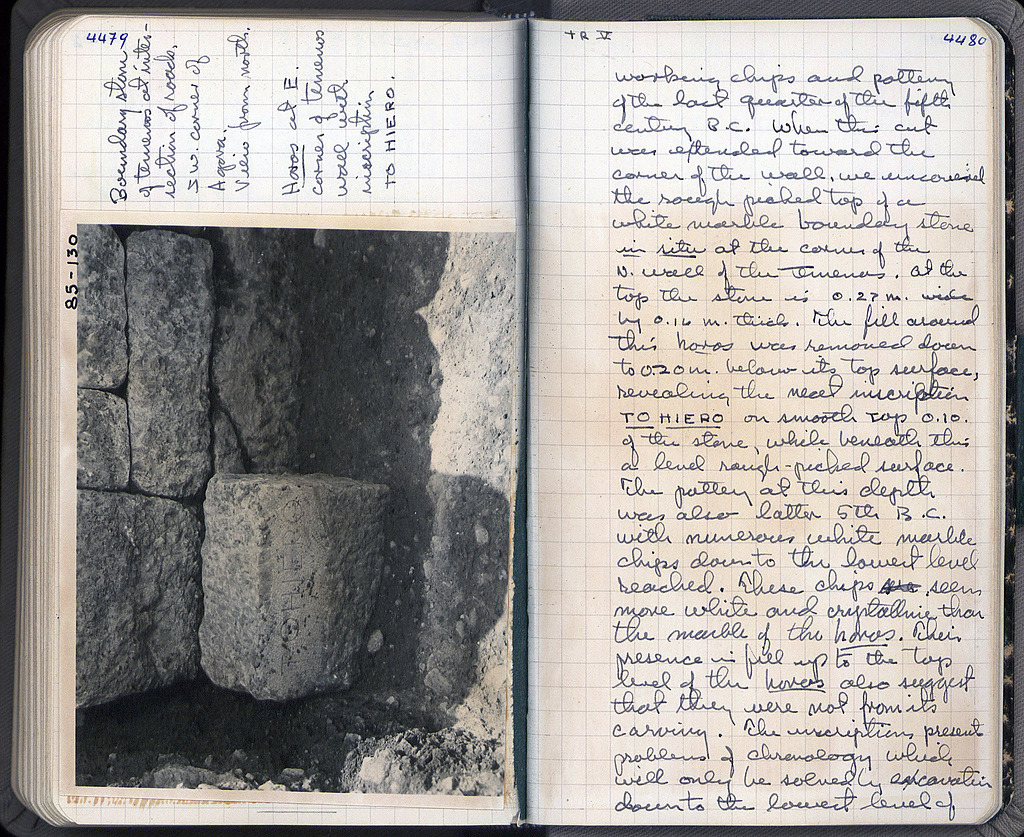 4479
Boundary stone
of temenos at inter-
section of roads.
S.W. corner of
Agora.
View from north.
Horos at E.
corner of temenos
wall with
inscription
TO HIERO.
85-130
TR V
4480
working chips and pottery
of the last quarter of the fifth
century B.C. When this cut
was extended toward the
corner of the wall, we uncovered
the rough picked top of a
white marble boundary stone
in situ at the corner of the
N. wall of the temenos. At the
top the stone is 0.27 m. wide
by 0.16 m. thick. The fill around
this horos was removed down
to 0.20 m. below its top surface,
revealing the neat inscription
TO HIERO on smooth top 0.10.
of the stone, while beneath this
a level rough-picked surface.
The pottery at this depth
was also latter 5th B.C.
with numerous white marble
chips down to the lowest level
reached. These chips seem
more white and crystalline than
the marble of the horos. Their
presence in fill up to the top
level of the horos also suggest
that they were not from its
carving. The inscriptions present
problems of chronology which
will only be solved by excavation
down to the lowest level of